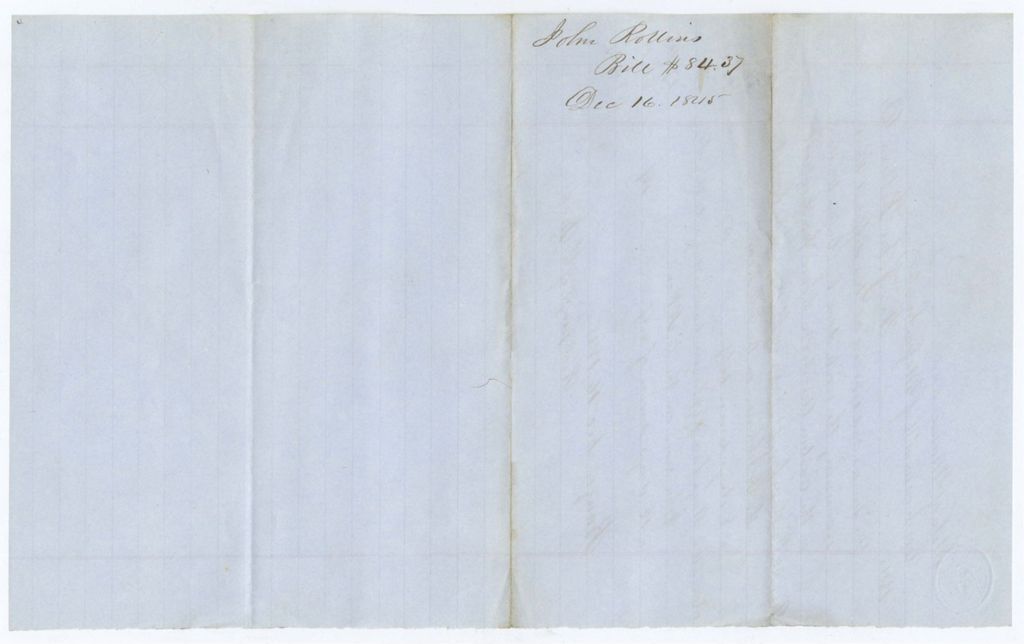 John Rollins
Bill $84.37
Dec 16. 1845